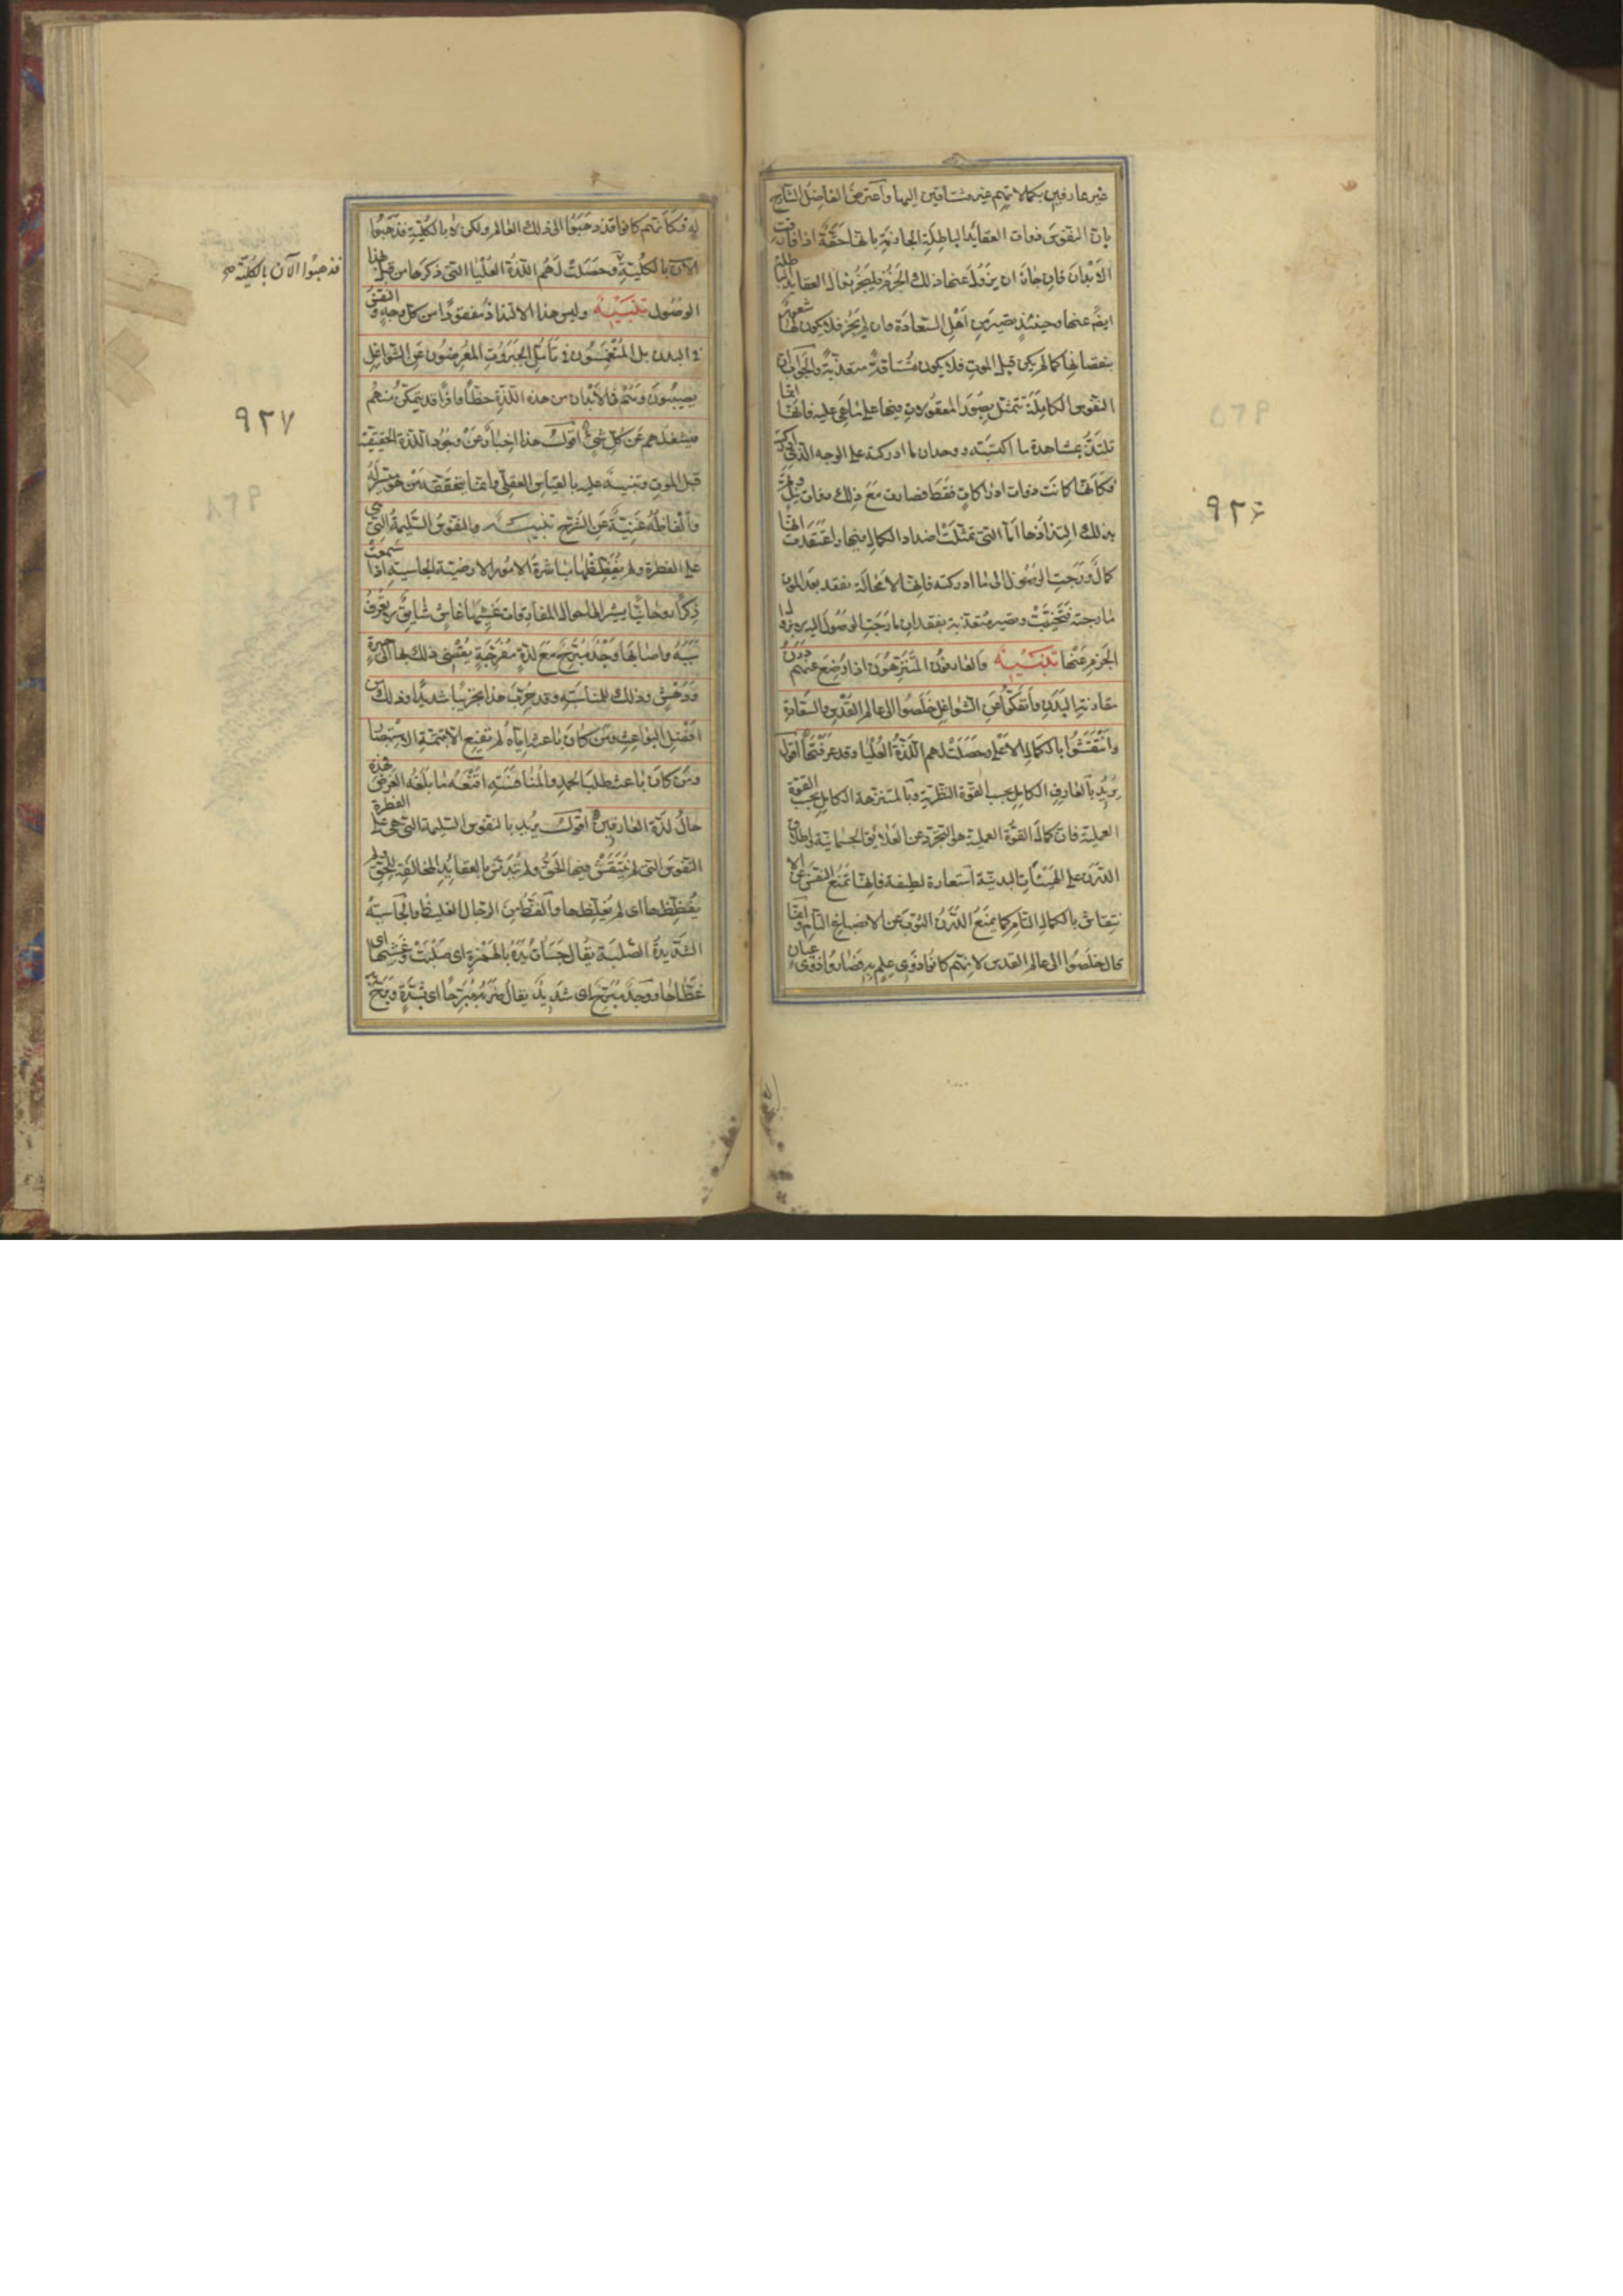 غير عارفين بكمالاتهم غير مشتاقين اليها واعترض الفاضل الشارح
بان النفوس ذوات العقايد الباطلة الجازمة بانها حقة اذا فارقت
الابدان فان جاز ان يزول عنها ذلك الجزم فليجز زوال العقايد الباطلة
ايضًا عنها وحينئذ تصير من اهل السعادة وان لم يجز فلا يكون لها شعور
بنقصانها كما لم يكن قبل الموت فلا يكون مشتاقة متعذبة والجواب ان
النفوس الكاملة تتمثل بصور المعقولات فيها على ما هي عليه فانها انما
تلتذ بمشاهدة ما اكتسبته ووجدان ما ادركته على الوجه الذي ادركته
فكانها كانت ذوات ادراكات فقط فصارت مع ذلك ذوات نيل وتم
بذلك التذاذها اما التي تمثلت اضداد الكمال فيها واعتقدت انها
كمال ورجت الوصول الى ما ادركته فانها لا محالة تفقد بعد الموت
ما رجته فتخيب وتصير متعذبة بفقدان ما رجت الوصول اليه لا بزوال
الجزم عنها تنبيه والعارفون المتنزهون اذا وضع عنهم درن
مقارنة البدن وانفكوا عن الشواغل خلصوا الى عالم القدس والسعادة
وانتقشوا بالكمال الاعلى وحصلت لهم اللذة العليا وقد عرفتها اقول
يريد بالعارف الكامل بحسب القوة النظرية وبالمتنزه الكامل بحسب القوة
العملية فان كمال القوة العملية هو التجرد عن العلايق الجسمانية واطلاق
الدرن على الهيئات البدنية استعارة لطيفة فانها تمنع النفس عن الا
نتقاش بالكمال التام كما يمنع الدرن الثوب عن الانصباغ التام وانما
قال خلصوا الى عالم القدس لانهم كانوا ذوى علم به فصاروا ذوى عيان
٩٢٦
له فكانهم كانوا قد ذهبوا الى ذلك العالم ولكن لا بالكلية فذهبوا
الآن بالكلية وحصلت لهم اللذة العليا التي ذكرها من قبل هذا
الوصول تنبيه وليس هذا الالتذاذ مفقودًا من كل وجه والنفس
في البدن بل المنغمسون في تأمل الجبروت المعرضون عن الشواغل
يصيبون وهم في الابدان من هذه اللذة حظًا وافرًا قد يتمكن منهم
فيشغلهم عن كل شئ اقول هذا اخبار عن وجود اللذة الحقيقية
قبل الموت وتنبيه عليه بالقياس العقلي وانما يتحققه من هو ميسر له
والفاظه غنية عن الشرح تنبيه والنفوس السليمة التي هي
على الفطرة ولم يفظظها مباشرة الامور الارضية الجاسية اذا سمعت
ذكرًا روحانيًا يشير الى احوال المفارقات غشيها غاش شايق لا يعرف
سببه واصابها وجد مبرح مع لذة مفرحة يفضي ذلك بها الى حيرة
ودهش وذلك للمناسبة وقد جرب هذا تجريبا شديدًا وذلك من
افضل البواعث ومن كان باعثه اياه لم يقنع الا بتتمة الاستبصار
ومن كان باعثه طلب الحمد والمنافسة اقنعه ما بلغه الغرض فهذه
حال لذة العارفين اقول يريد بالنفوس السليمة التي هي على الفطرة
النفوس التي لم ينتقش فيها الحق ولم تتدنس بالعقايد المخالفة للحق ولم
يفظظها اى لم يغلظها والفظ من الرجال الغليظ والجاسية
الشديدة الصلبة يقال جسأت يده بالهمزة اى صلبت وغشيها اى
غطاها ووجد مبرح اى شديد يقال ضربه مبرحًا اى بشدة وبرح
فذهبوا الآن بالكلية صح
٩٢٧